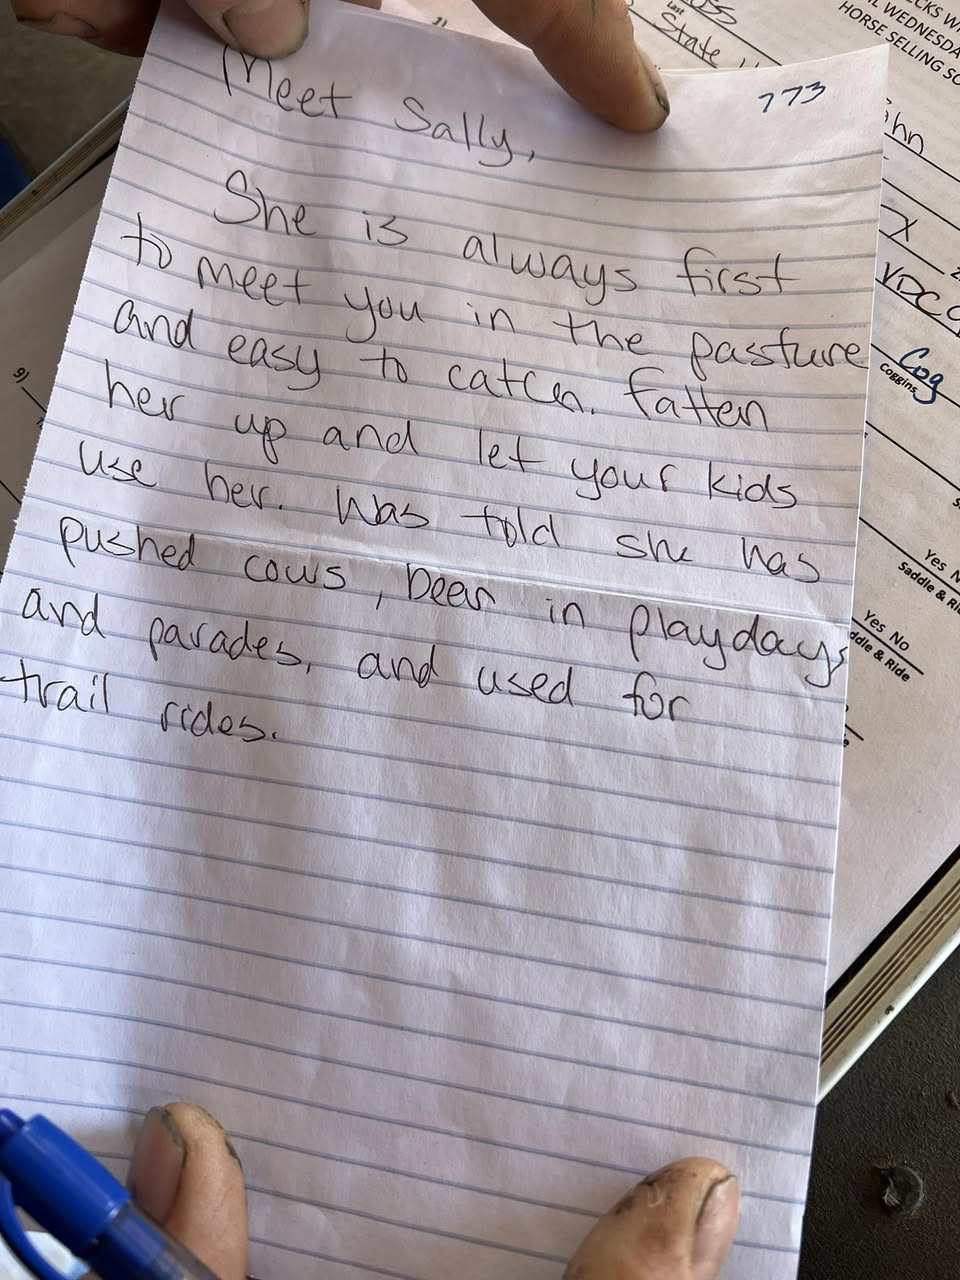 Meet Sally,
773
She is always first
to meet you in the pasture
and easy to catch. Fatten
her up and let your kids
use her. Was told she has
pushed cows, been in playdays
and parades, and used for
trail rides.
Last
State
HORSE SELLING
X
Cog
Coggins
Yes
Saddle & Ri
Yes No
ddle & Ride
9)